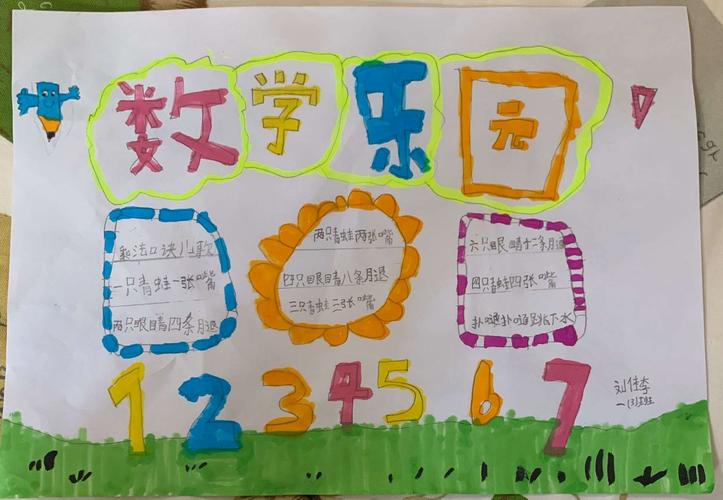 数学乐园
乘法口诀儿歌
一只青蛙一张嘴
两只眼睛四条月退
两只青蛙两张嘴
四只眼睛八条月退
三只青蛙三张嘴
六只眼睛十二条月退
四只青蛙四张嘴
扑嗵扑嗵跳下水
1 2 3 4 5 6 7
刘佳李
一(3)班